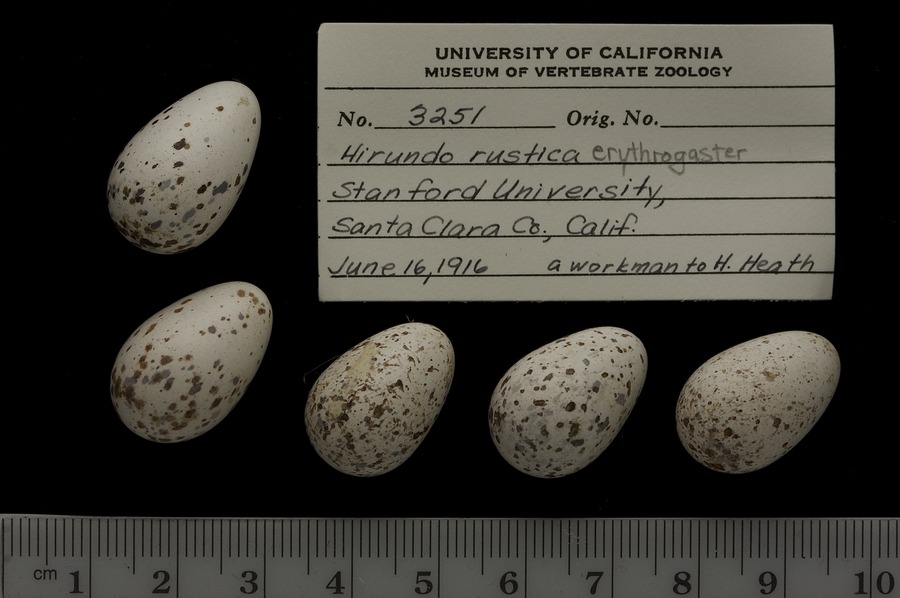 UNIVERSITY OF CALIFORNIA
MUSEUM OF VERTEBRATE ZOOLOGY
No. 3251 Orig. No.
Hirundo rustica erythrogaster
Stanford University,
Santa Clara Co., Calif.
June 16, 1916 a workman to H. Heath
cm 1 2 3 4 5 6 7 8 9 10